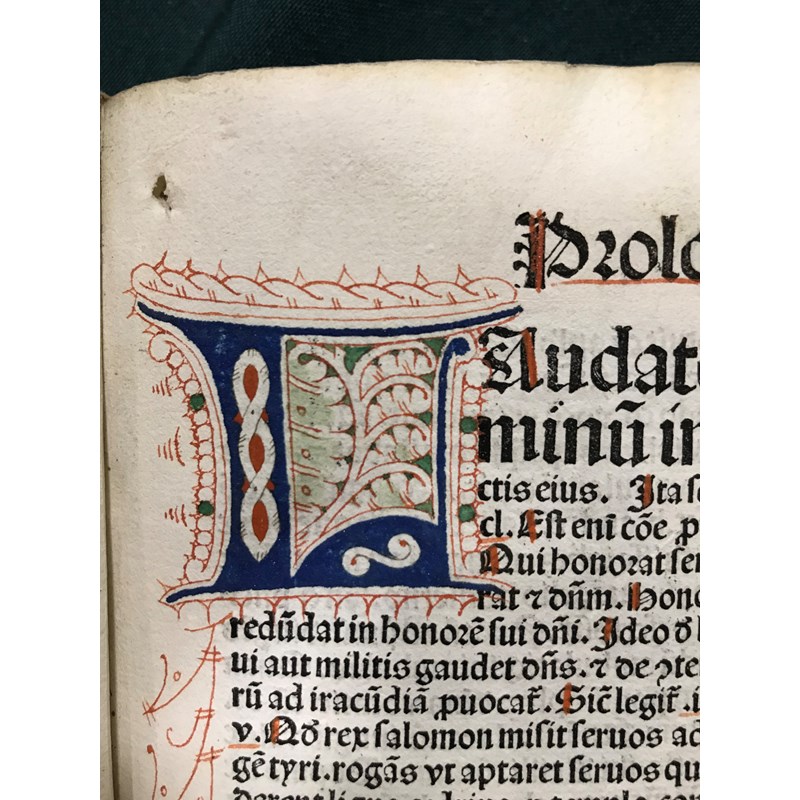 Prolo
LAudate
minū in
ctis eius. Ita s
cl. Est enī cōe p
Qui honorat ser
rat ⁊ dñm. Hono
redūdat in honorē sui dñi. Ideo
ui aut militis gaudet dñs. ⁊ de ꝯte
rū ad iracūdiā ꝓuocat. Sic legit. i
v. Qđ rex salomon misit seruos ad
gē tyri. rogās vt aptaret seruos qu